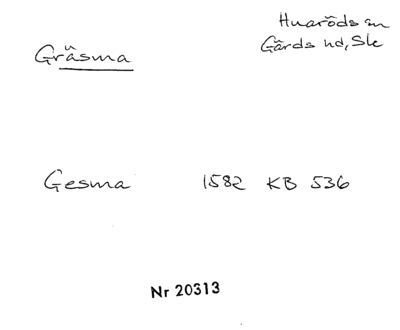 Gräsma
Huaröds sn
Gärds hd, Skå
Gesma 1582 KB 536
Nr 20313